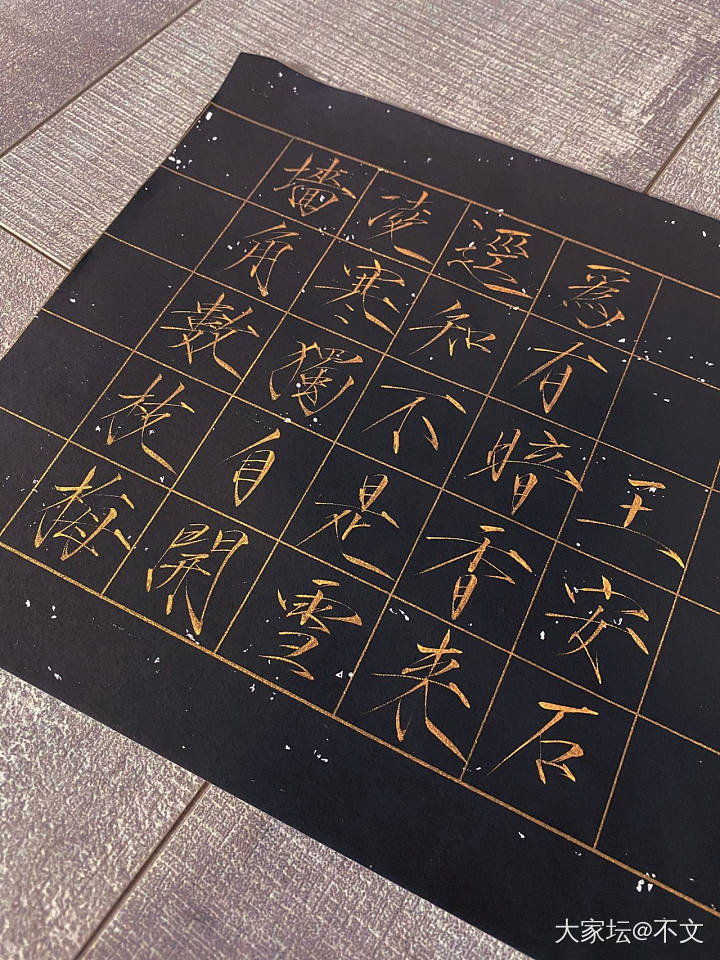 墻角數枝梅
凌寒獨自開
遙知不是雪
爲有暗香来
王安石
大家坛@不文